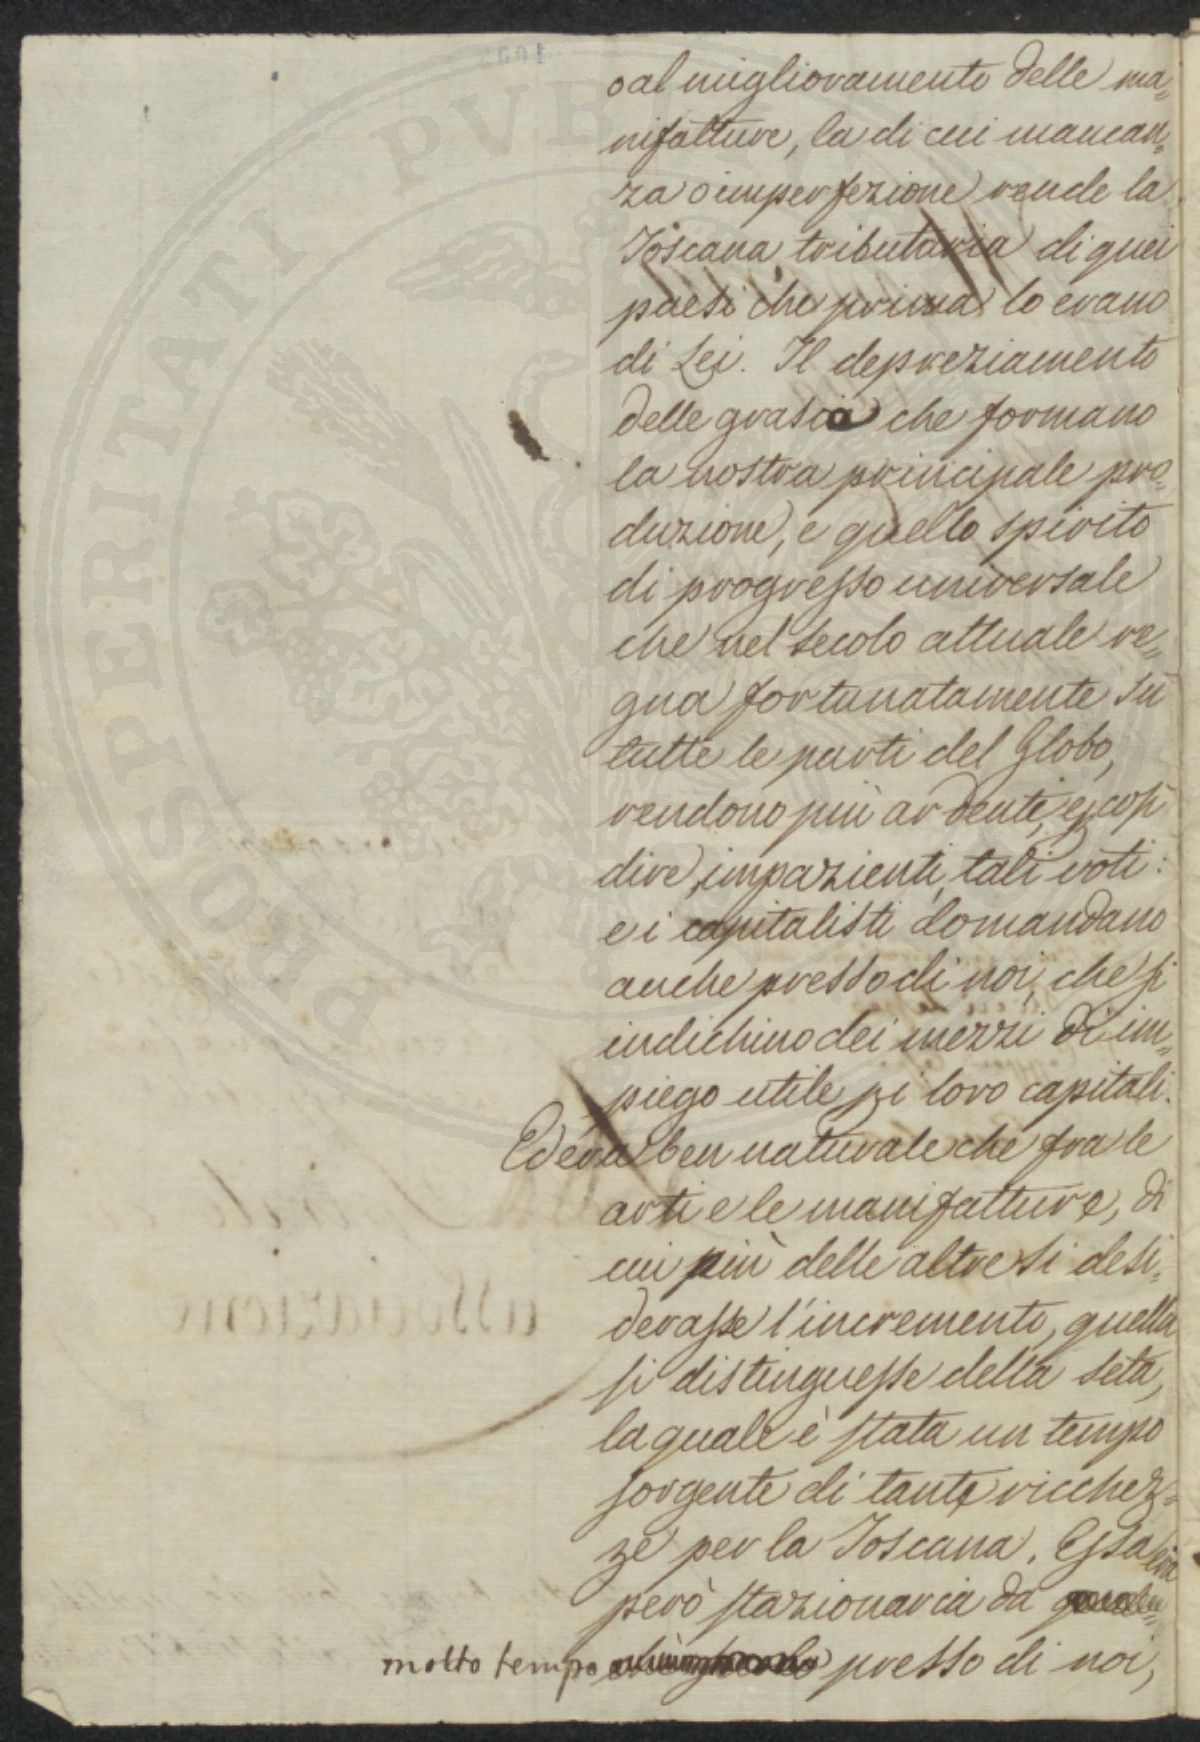 o al miglioramento delle ma=
nifatture, la di cui mancan=
za o imperfezione rende la
Toscana tributaria di quei
paesi che prima lo erano
di Lei. Il depreziamento
delle grascia che formano
la nostra principale pro=
duzione, e quello spirito
di progresso universale
che nel secolo attuale re=
gna fortunatamente su
tutte le parti del Globo,
rendono più ardenti, e, così
dire, impazienti, tali voti:
e i capitalisti domandano
anche presso di noi, che si
indichino dei mezzi di im=
piego utile pei loro capitali.
Ed era ben naturale che fra le
arti e le manifatture, di
cui più delle altre si desi=
derasse l'incremento, quella
si distinguesse della seta,
la quale è stata un tempo
sorgente di tante ricchez=
ze per la Toscana. Essa era
però stazionaria da
molto tempo presso di noi,
PROSPERITATI PVB
associazione